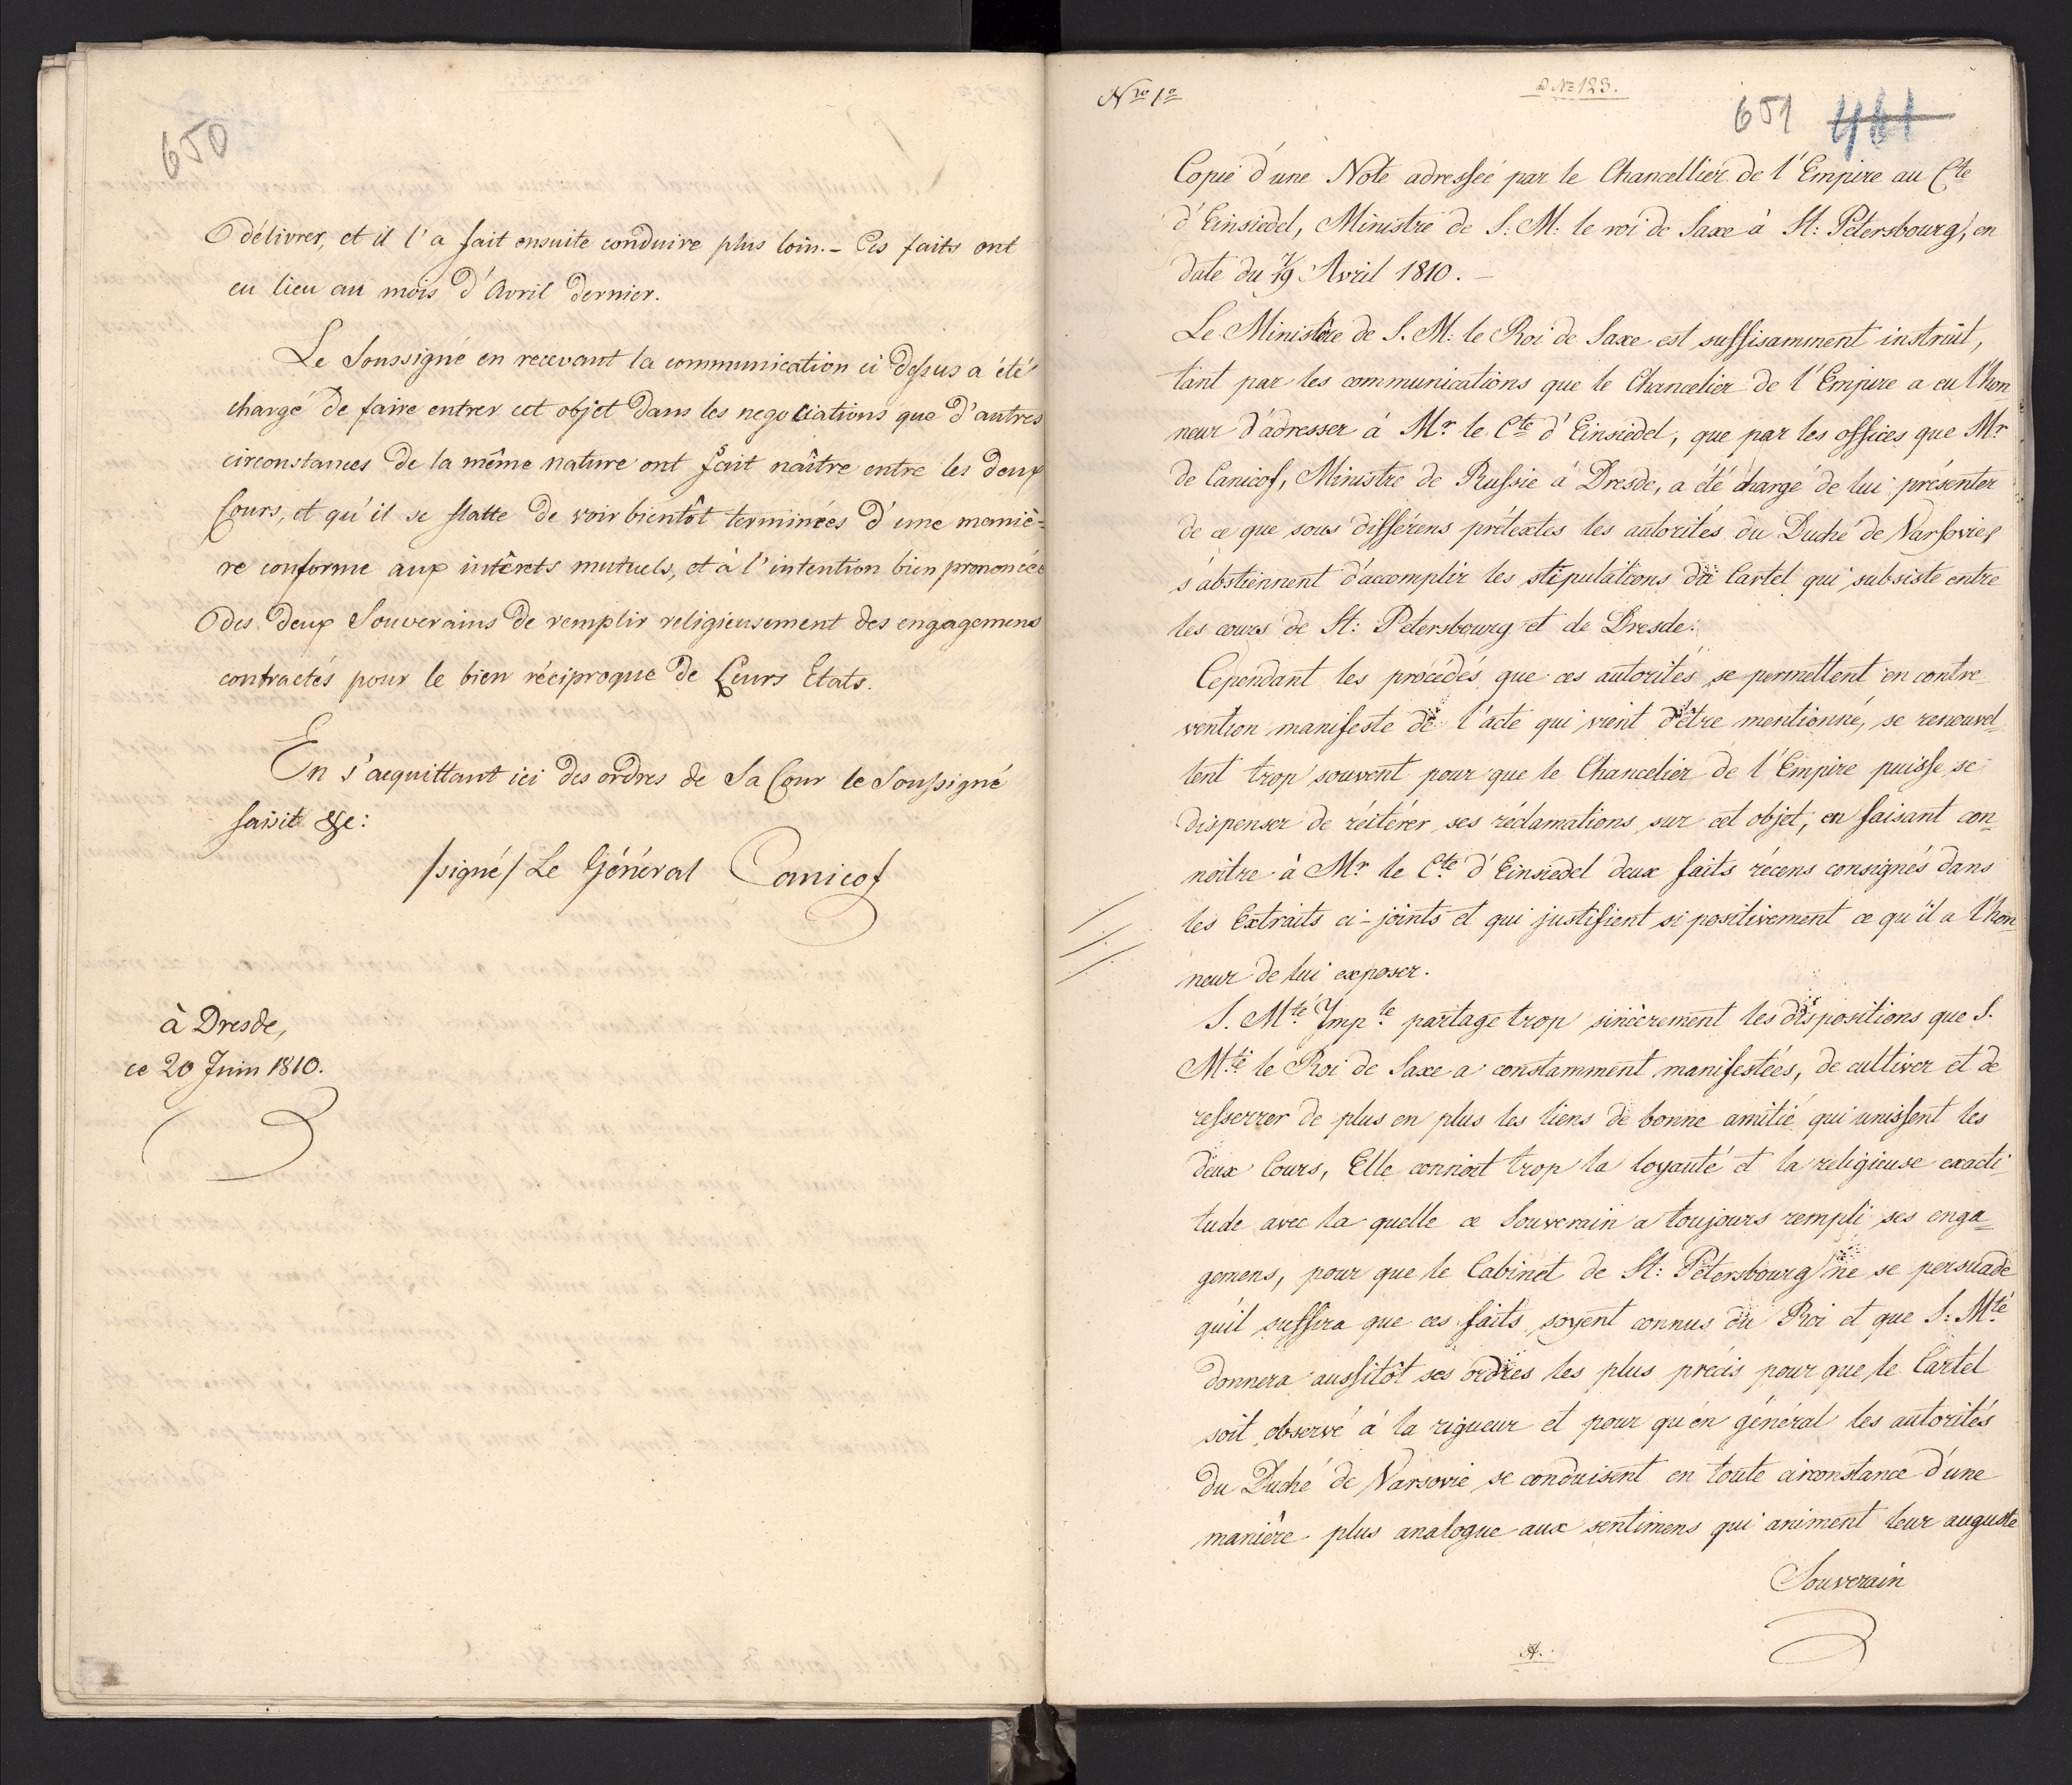 650
délivrer, et il l'a fait ensuite conduire plus loin. – Ces faits ont
eu lieu au mois d'Avril dernier.
Le Soussigné en recevant la communication ci dessus a été
chargé de faire entrer cet objet dans les negociations que d'autres
circonstances de la même nature ont fait naître entre les deux
Cours, et qu'il se flatte de voir bientôt terminées d'une maniè-
re conforme aux intêrets mutuels, et à l'intention bien prononcée
des deux Souverains de remplir religieusement des engagemens
contractés pour le bien réciproque de Leurs Etats.
En s'acquittant ici des ordres de Sa Cour le Soussigné
saisit &c:
/signé/ Le Général Canicof
à Dresde,
ce 20 Juin 1810.
Nro 1o
ad No 123.
651 461
Copie d'une Note adressée par le Chancellier de l'Empire au Cte
d'Einsiedel, Ministre de S: M: le roi de Saxe à St: Pétersbourg, en
date du 7/19 Avril 1810. –
Le Ministère de S. M: le Roi de Saxe est suffisamment instruit,
tant par les communications que le Chancelier de l'Empire a eu l'hon
neur d'adresser à Mr le Cte d'Einsiedel, que par les offices que Mr
de Canicof, Ministre de Russie à Dresde, a été chargé de lui présenter
de ce que sous différens prétextes les autorités du Duché de Varsovie
s'abstiennent d'accomplir les stipulations du Cartel qui subsiste entre
les cours de St: Petersbourg et de Dresde.
Cependant les procédés que ces autorités se permettent en contre-
vention manifeste de l'acte qui vient d'être mentionné, se renouvel=
lent trop souvent pour que le Chancelier de l'Empire puisse se
dispenser de réitérer ses réclamations sur cet objet, en faisant con=
noitre à Mr le Cte d'Einsiedel deux faits récens consignés dans
les Extraits ci-joints et qui justifient si positivement ce qu'il a l'hon=
neur de lui exposer.
S. Mté Imple partage trop sincèrement les dispositions que S.
Mté le Roi de Saxe a constamment manifestées, de cultiver et de
resserrer de plus en plus les liens de bonne amitié qui unissent les
deux Cours, Elle connoit trop la loyauté et la religieuse exacti
tude avec la quelle ce Souverain a toujours rempli ses enga=
gemens, pour que le Cabinet de St: Pétersbourg ne se persuade
qu'il suffira que ces faits soyent connus du Roi et que S: Mté
donnera aussitôt ses ordres les plus précis pour que le Cartel
soit observé à la rigueur et pour qu'en général les autorités
du Duché de Varsovie se conduisent en toute circonstance d'une
manière plus analogue aux sentimens qui animent leur auguste
Souverain